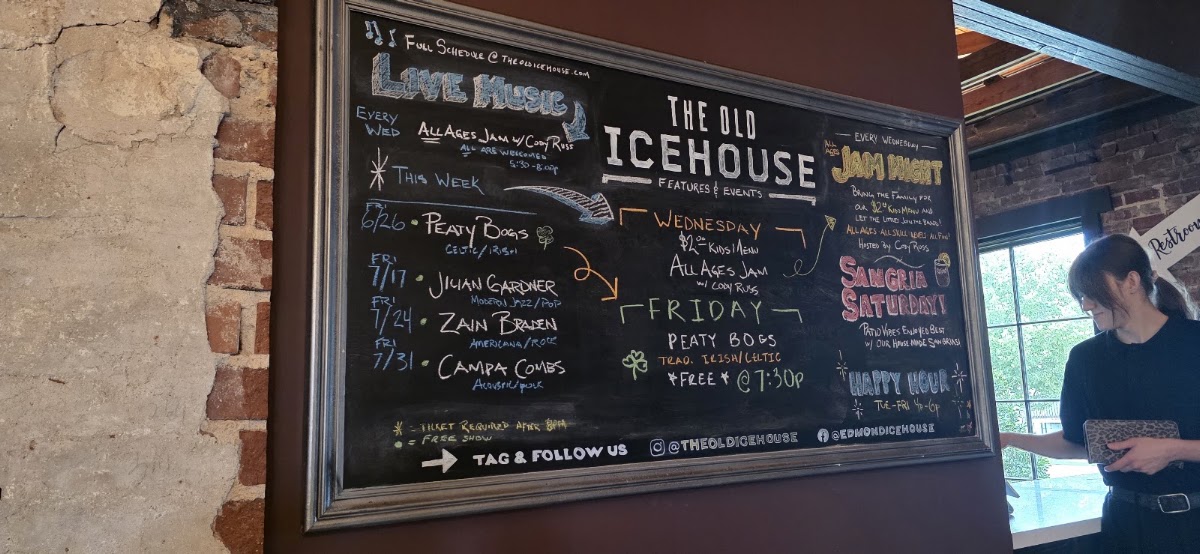 Full Schedule @ theoldicehouse.com
Live Music
Every
Wed
All Ages Jam w/ Cody Russ
All are welcomed
5:30-8:00pm
This Week
Fri
6/26 • Peaty Bogs
Celtic/Irish
Fri
7/17 • Jilian Gardner
Modern Jazz/Pop
Fri
7/24 • Zain Braden
Americana/Rock
Fri
7/31 • Campa Combs
Acoustic/
* - Ticket required after 8pm
• = Free show
The Old
Icehouse
Features & Events
Wednesday
$2.00 Kids Menu
All Ages Jam
w/ Cody Russ
Friday
Peaty Bogs
Trad. Irish/Celtic
*Free* @ 7:30p
Every Wednesday
All Ages
Jam Night
Bring the Family for
our $2.00 Kids Menu and
let the littles join the band!
All ages all skill levels all fun!
Hosted by Cody Russ
Sangria
Saturday!
Patio vibes enjoyed best
w/ our house made sangrias!
Happy Hour
Tue-Fri 4p-6p
Tag & Follow Us
@theoldicehouse
@edmondicehouse
Restroom